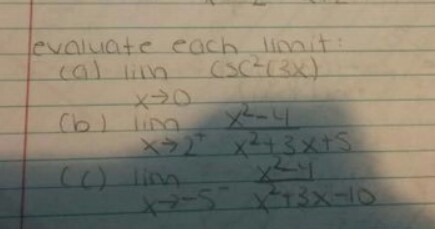 evaluate each limit:
(a) lim csc²(3x)
x→0
(b) lim x²-4
x→2⁺ x²+3x+5
(c) lim x²-4
x→-5⁻ x²+3x-10